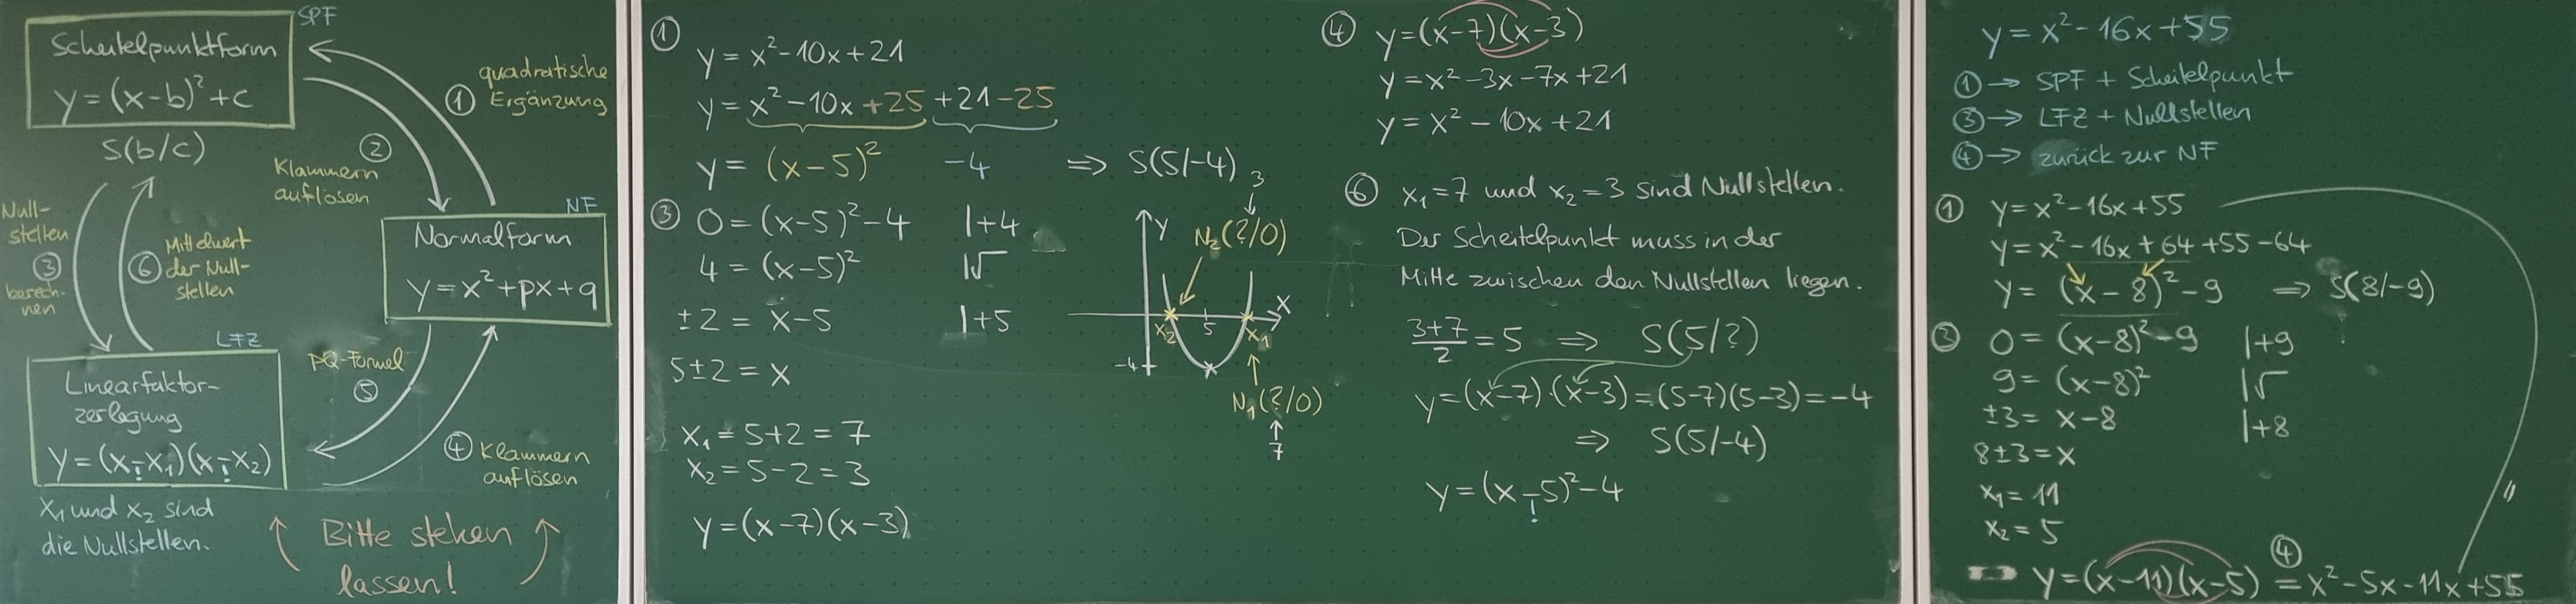 SPF
Scheitelpunktform
y = (x-b)² + c
S(b/c)
① quadratische
Ergänzung
②
Klammern
auflösen
Null-
stellen
③
berech-
nen
⑥ Mittelwert
der Null-
stellen
NF
Normalform
y = x² + px + q
LFZ
Linearfaktor-
zerlegung
y = (x-x₁)(x-x₂)
! !
PQ-Formel
⑤
④ Klammern
auflösen
x₁ und x₂ sind
die Nullstellen.
Bitte stehen
lassen!
①
y = x² - 10x + 21
y = x² - 10x + 25 + 21 - 25
y = (x-5)² -4 ⇒ S(5/-4)
③ 0 = (x-5)² - 4 |+4
4 = (x-5)² |√
±2 = x-5 |+5
5±2 = x
x₁ = 5+2 = 7
x₂ = 5-2 = 3
y = (x-7)(x-3)
3
y
N₂(?/0)
x
x₂ 5 x₁
-4
N₁(?/0)
7
④ y = (x-7)(x-3)
y = x² - 3x - 7x + 21
y = x² - 10x + 21
⑥ x₁ = 7 und x₂ = 3 sind Nullstellen.
Der Scheitelpunkt muss in der
Mitte zwischen den Nullstellen liegen.
(3+7)/2 = 5 ⇒ S(5/?)
y = (x-7)·(x-3) = (5-7)(5-3) = -4
⇒ S(5/-4)
y = (x-5)² - 4
!
y = x² - 16x + 55
① → SPF + Scheitelpunkt
③ → LFZ + Nullstellen
④ → zurück zur NF
① y = x² - 16x + 55
y = x² - 16x + 64 + 55 - 64
y = (x-8)² - 9 ⇒ S(8/-9)
③ 0 = (x-8)² - 9 |+9
9 = (x-8)² |√
±3 = x-8 |+8
8±3 = x
x₁ = 11
x₂ = 5
④
y = (x-11)(x-5) = x² - 5x - 11x + 55